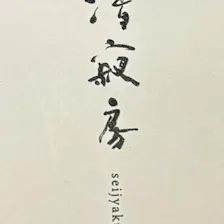 清寂房
seijyak